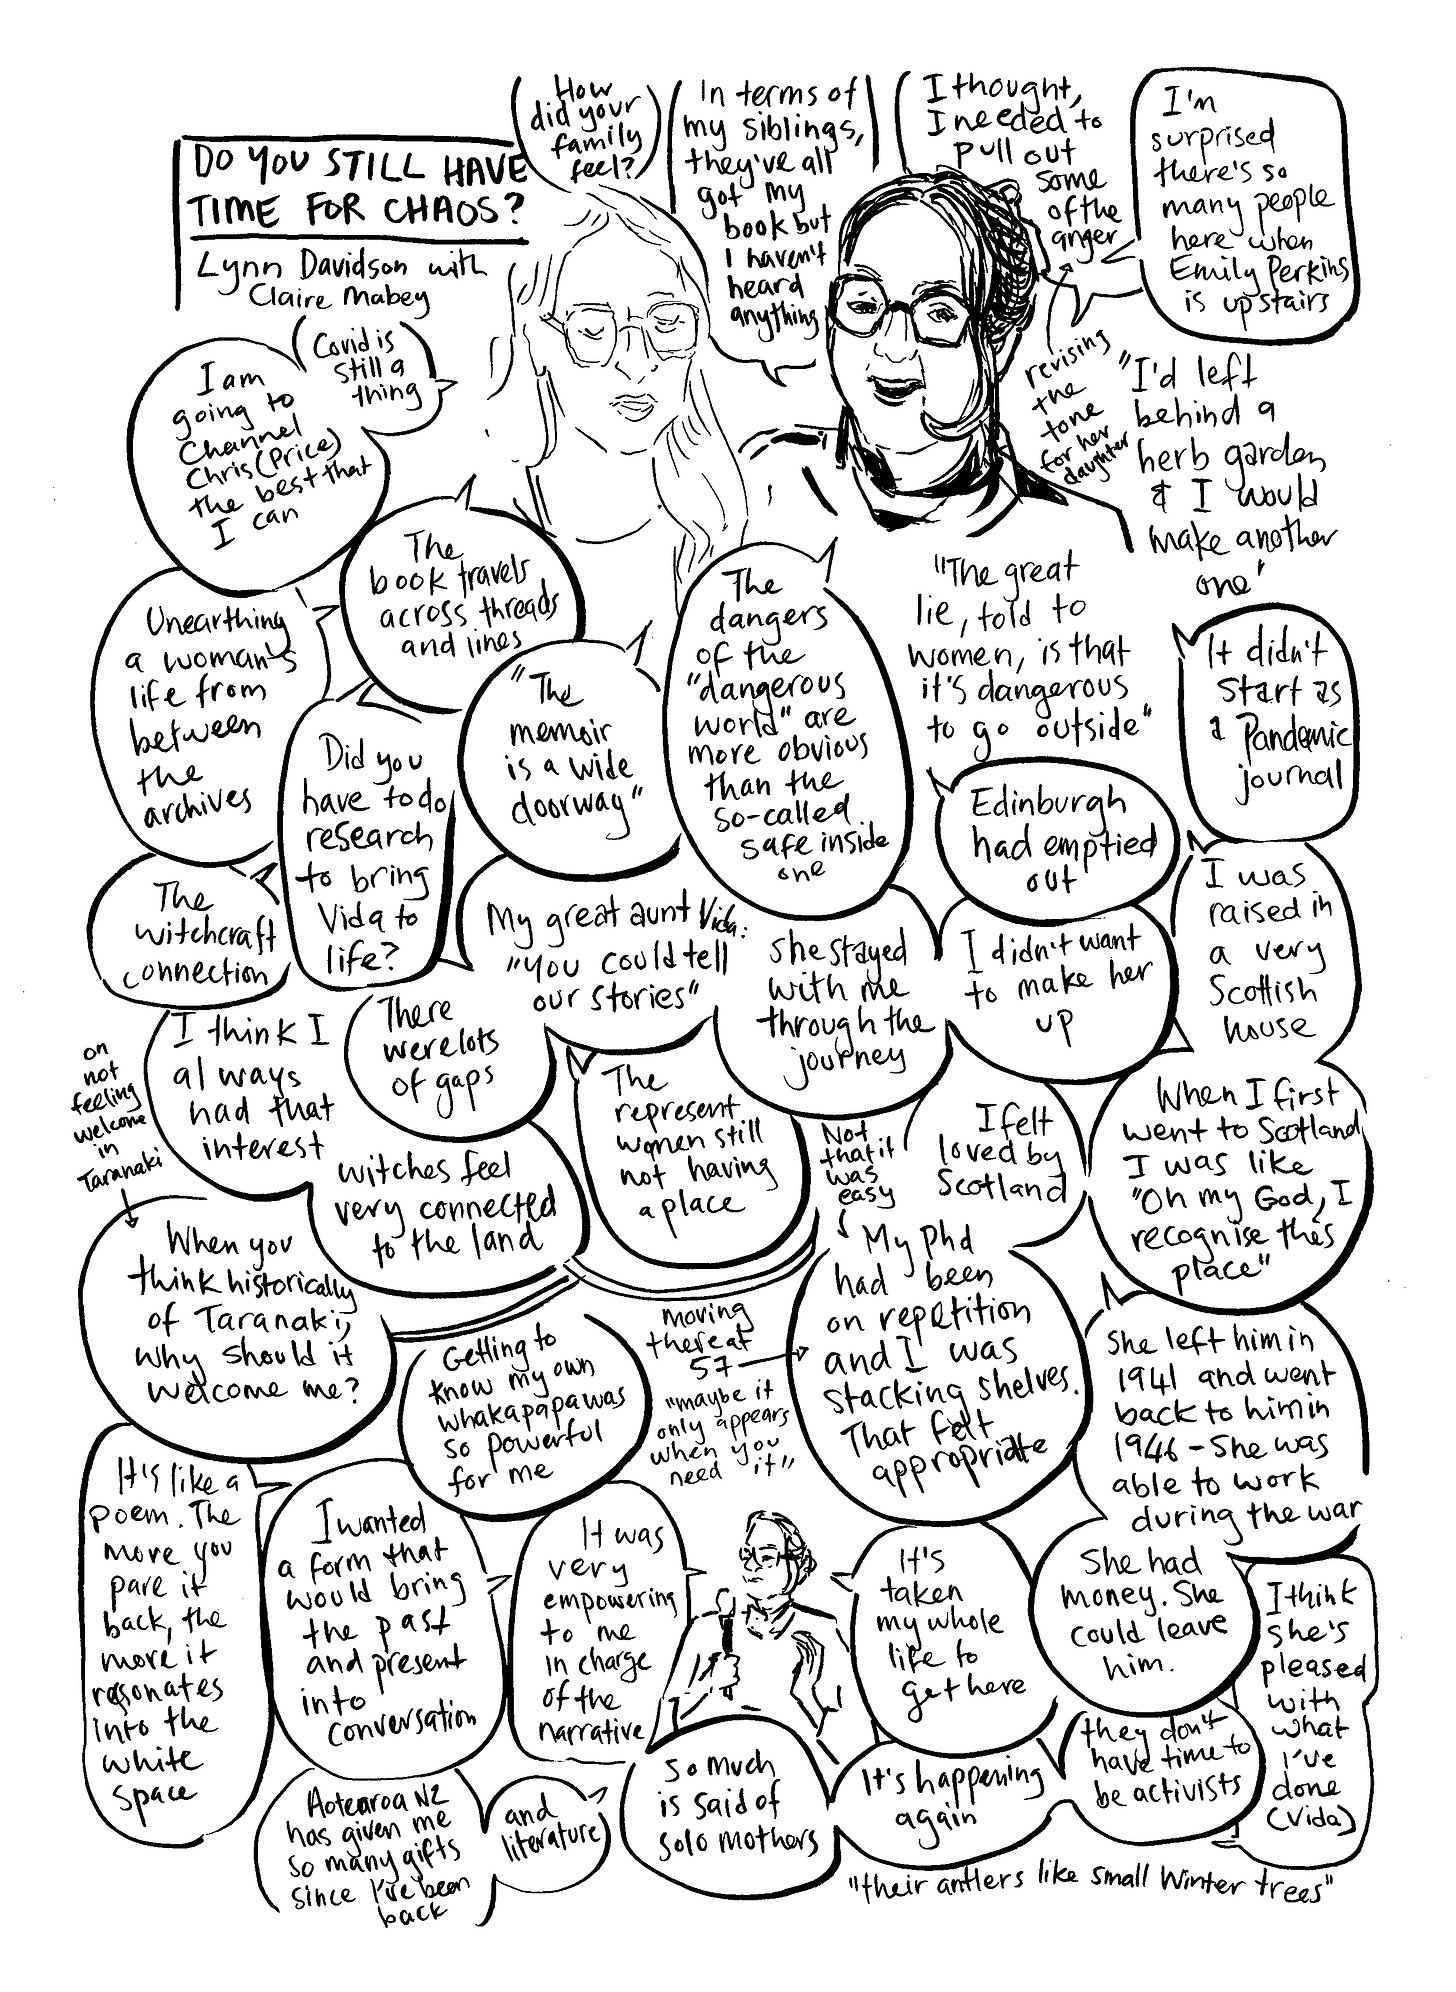 DO YOU STILL HAVE
TIME FOR CHAOS?
Lynn Davidson with
Claire Mabey
How
did your
family
feel?
In terms of
my siblings,
they've all
got my
book but
I haven't
heard
anything
I thought,
I needed to
pull out
some
of the
anger
I'm
surprised
there's so
many people
here when
Emily Perkins
is upstairs
revising
the
tone
for her
daughter
Covid is
still a
thing
I am
going to
Channel
Chris (Price)
the best that
I can
"I'd left
behind a
herb garden
& I would
make another
one"
The
book travels
across threads
and lines
Unearthing
a woman's
life from
between
the
archives
"The
memoir
is a wide
doorway"
The
dangers
of the
"dangerous
world" are
more obvious
than the
so-called
safe inside
one
"The great
lie, told to
women, is that
it's dangerous
to go outside"
It didn't
start as
a Pandemic
journal
Did you
have to do
research
to bring
Vida to
life?
Edinburgh
had emptied
out
The
witchcraft
connection
My great aunt Vida:
"you could tell
our stories"
She stayed
with me
through the
journey
I didn't want
to make her
up
I was
raised in
a very
Scottish
house
I think I
always
had that
interest
There
were lots
of gaps
The
represent
women still
not having
a place
on
not
feeling
welcome
in
Taranaki
witches feel
very connected
to the land
Not
that it
was
easy
I felt
loved by
Scotland
When I first
went to Scotland
I was like
"Oh my God, I
recognise this
place"
When you
think historically
of Taranaki,
why should it
welcome me?
My Phd
had been
on repetition
and I was
stacking shelves.
That felt
appropriate
moving
there at
57
"maybe it
only appears
when you
need it"
Getting to
know my own
whakapapa was
so powerful
for me
She left him in
1941 and went
back to him in
1946 - She was
able to work
during the war
It's like a
poem. The
more you
pare it
back, the
more it
resonates
into the
white
space
I wanted
a form that
would bring
the past
and present
into
conversation
It was
very
empowering
to me
in charge
of the
narrative
It's
taken
my whole
life to
get here
She had
money. She
could leave
him.
I think
she's
pleased
with
what
I've
done
(Vida)
Aotearoa NZ
has given me
so many gifts
since I've been
back
and
literature
So much
is said of
solo mothers
It's happening
again
they don't
have time to
be activists
"their antlers like small winter trees"